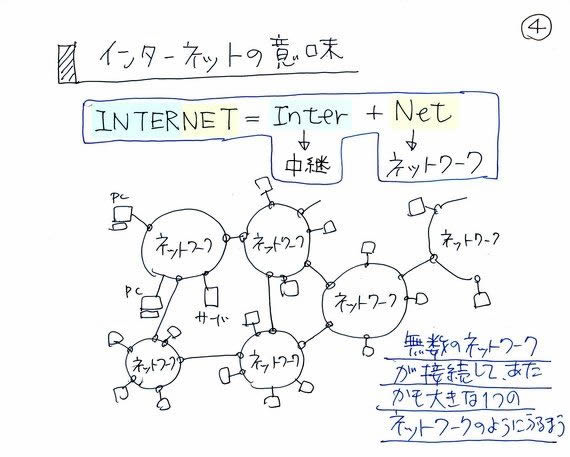 ④
インターネットの意味
INTERNET = Inter + Net
中継
ネットワーク
PC
ネットワーク
ネットワーク
ネットワーク
PC
サーバ
ネットワーク
ネットワーク
ネットワーク
無数のネットワーク
が接続して、あた
かも大きな1つの
ネットワークのようにふるまう